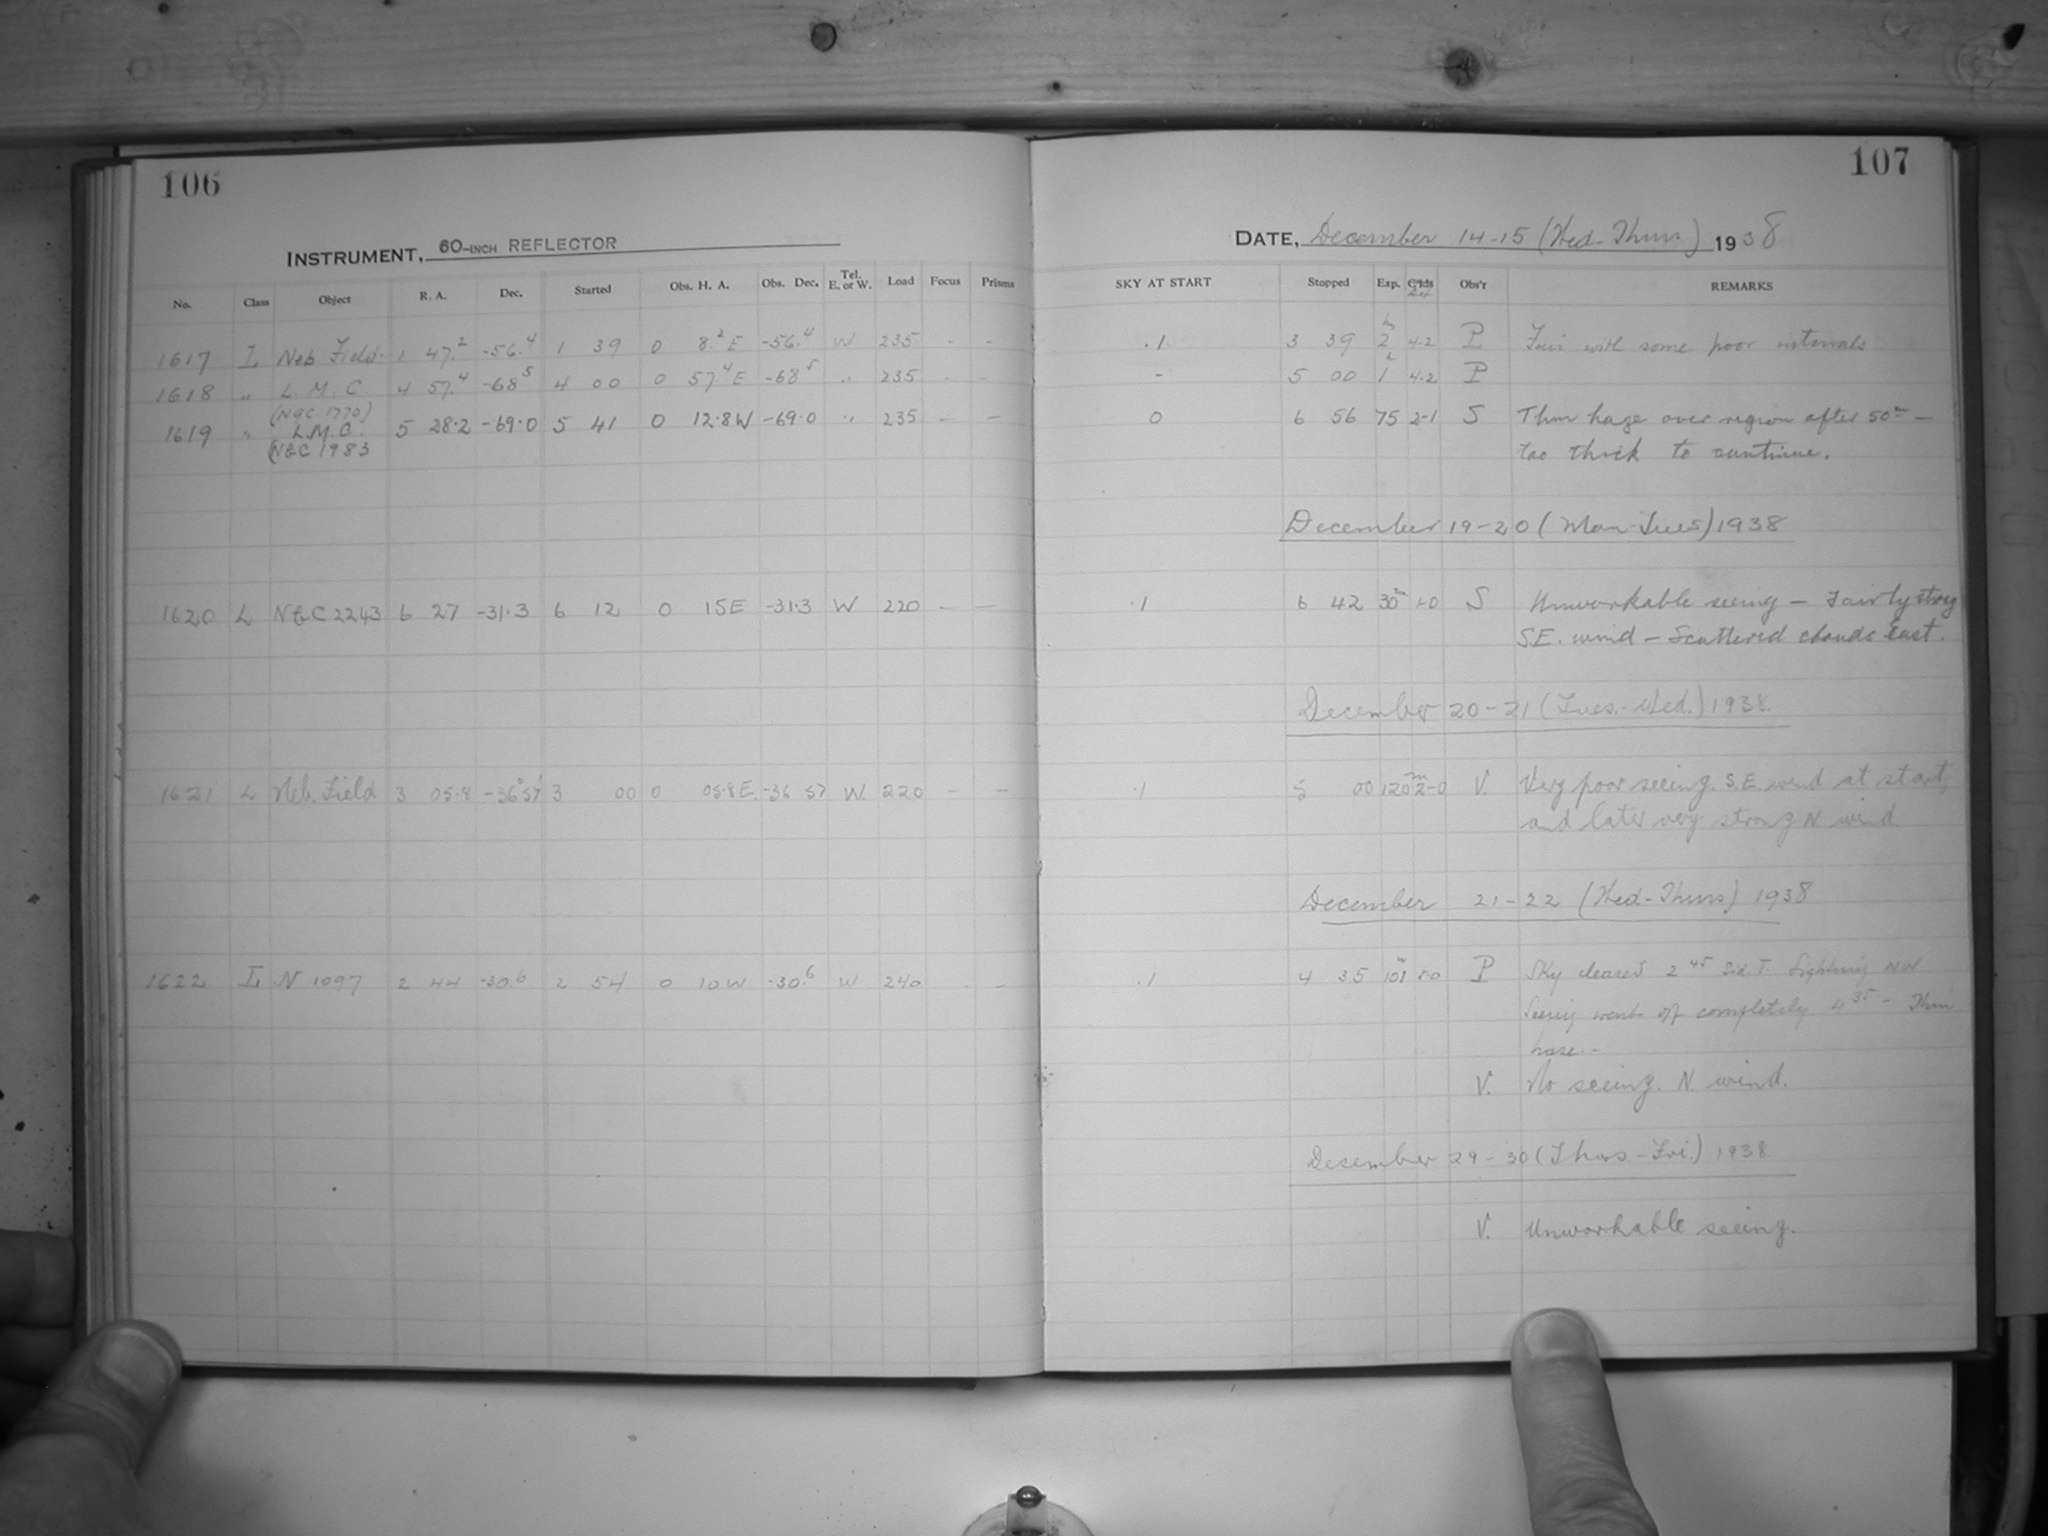 106
INSTRUMENT, 60-INCH REFLECTOR
No. Class Object R. A. Dec. Started Obs. H. A. Obs. Dec. Tel. E. or W. Load Focus Prisms
1617 L Neb. Field 1 47.2 -56.4 1 39 0 8.2 E -56.4 W 235 - -
1618 " L. M. C. 4 57.4 -68.5 4 00 0 57.4 E -68.5 " 235 - -
(NGC 1770)
1619 " L.M.C. 5 28.2 -69.0 5 41 0 12.8W -69.0 " 235 - -
(NGC 1983
1620 L NGC 2243 6 27 -31.3 6 12 0 15E -31.3 W 220 - -
1621 L Neb. Field 3 05.8 -36° 57' 3 00 0 05.8 E. -36 57 W. 220 - -
1622 L N 1097 2 44 -30.6 2 54 0 10 W -30.6 W 240 - -
107
DATE, December 14-15 (Wed-Thurs) 1938
SKY AT START Stopped Exp. Obs'r REMARKS
.1 3 39 2h 4-2 P Fair with some poor intervals
- 5 00 1h 4-2 P
0 6 56 75 2-1 S Thin haze over region after 50m -
too thick to continue.
December 19-20 (Mon-Tues) 1938
.1 6 42 30m 1-0 S Unworkable seeing - Fairly strong
S.E. wind - Scattered clouds East.
December 20-21 (Tues.-Wed.) 1938
.1 5 00 120m 2-0 V. Very poor seeing. S.E. wind at start,
and later very strong N wind
December 21-22 (Wed-Thurs) 1938
.1 4 35 101m P Sky cleared 2 45 Sid. T. Lightning NW
Seeing went off completely 4 35 - Thin
haze. -
V. No seeing. N. wind.
December 29-30 (Thurs-Fri.) 1938
V. Unworkable seeing.